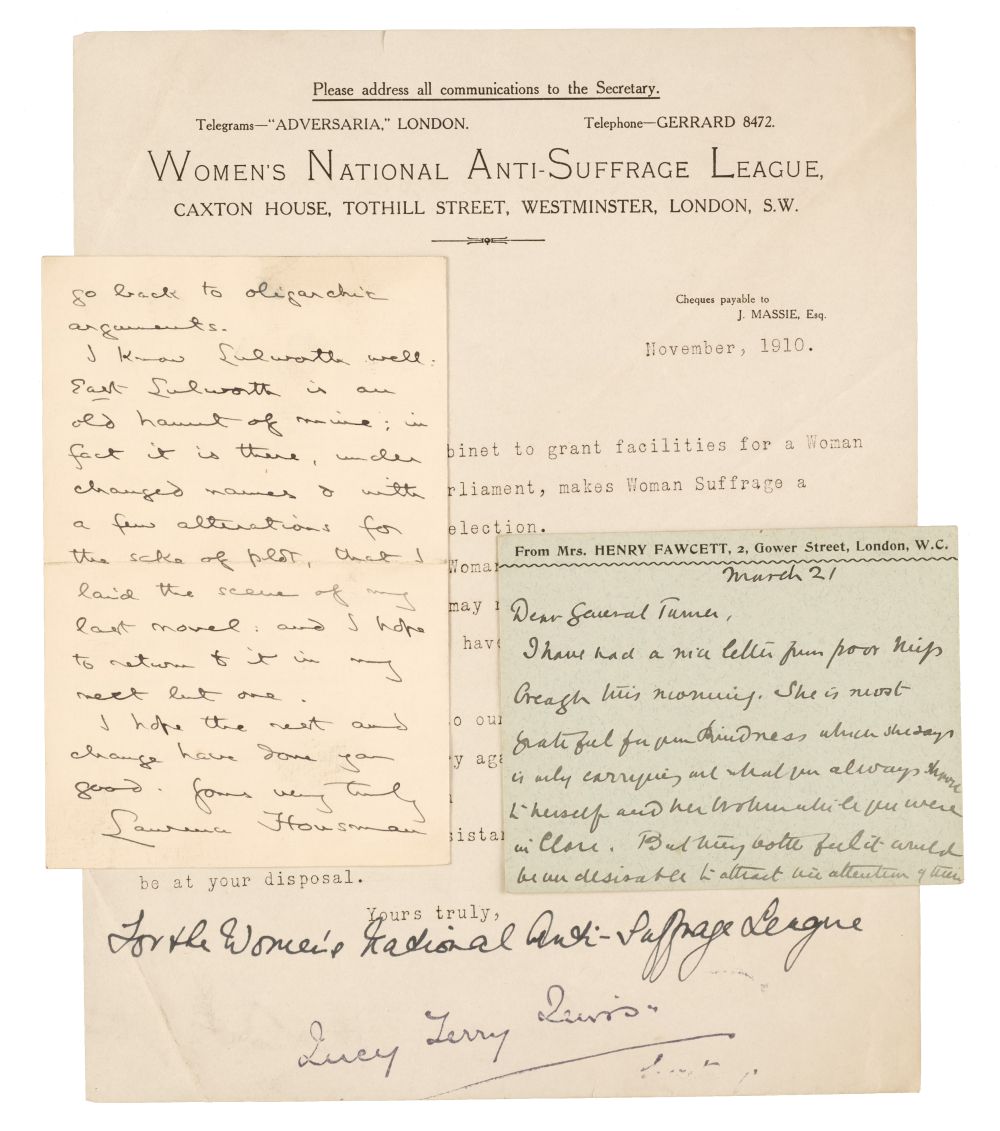 Please address all communications to the Secretary.
Telegrams—"ADVERSARIA," LONDON.
Telephone—GERRARD 8472.
WOMEN'S NATIONAL ANTI-SUFFRAGE LEAGUE,
CAXTON HOUSE, TOTHILL STREET, WESTMINSTER, LONDON, S.W.
Cheques payable to
J. MASSIE, Esq.
November, 1910.
binet to grant facilities for a Woman
rliament, makes Woman Suffrage a
election.
Woma
may
have
o our
ry aga
sistan
be at your disposal.
Yours truly,
For the Women's National Anti-Suffrage League
Lucy Terry Lewis
go back to oligarchic
arguments.
I know Lulworth well:
East Lulworth is an
old haunt of mine; in
fact it is there, under
changed names & with
a few alterations for
the sake of plot, that I
laid the scene of my
last novel: and I hope
to return to it in my
next but one.
I hope the rest and
change have done you
good. Yours very truly
Laurence Housman
From Mrs. HENRY FAWCETT, 2, Gower Street, London, W.C.
March 21
Dear General Turner,
I have had a nice letter from poor Miss
Creagh this morning. She is most
grateful for your kindness which she says
is only carrying out what you always
to herself and her brother while you were
in Clare. But they both feel it would
be undesirable to attract the attention of